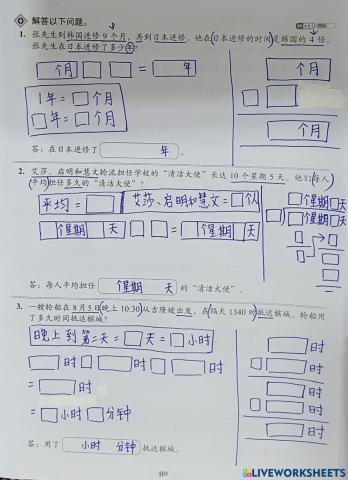 解答以下问题。
1. 张先生到韩国进修9个月，再到日本进修。他在日本进修的时间是韩国的4倍。
张先生在日本进修了多少年？
个月 = 年
个月
1年 = 个月
年 = 个月
个月
答：在日本进修了 年。
2. 艾莎、启明和慧文轮流担任学校的“清洁大使”长达10个星期5天。他们每人
平均担任多久的“清洁大使”？
平均 = 艾莎、启明和慧文 = 个人
个星期 天
个星期 天
个星期 天 = 个星期 天
答：每人平均担任 个星期 天 的“清洁大使”。
3. 一艘轮船在8月5日晚上10:30从吉隆坡出发，在隔天1340时抵达槟城。轮船用
了多少时间抵达槟城？
晚上到第二天 = 天 = 小时
时
时 时 时
时
= 时
时
时
= 小时 分钟
时
答：用了 小时 分钟 抵达槟城。
B9
LIVEWORKSHEETS